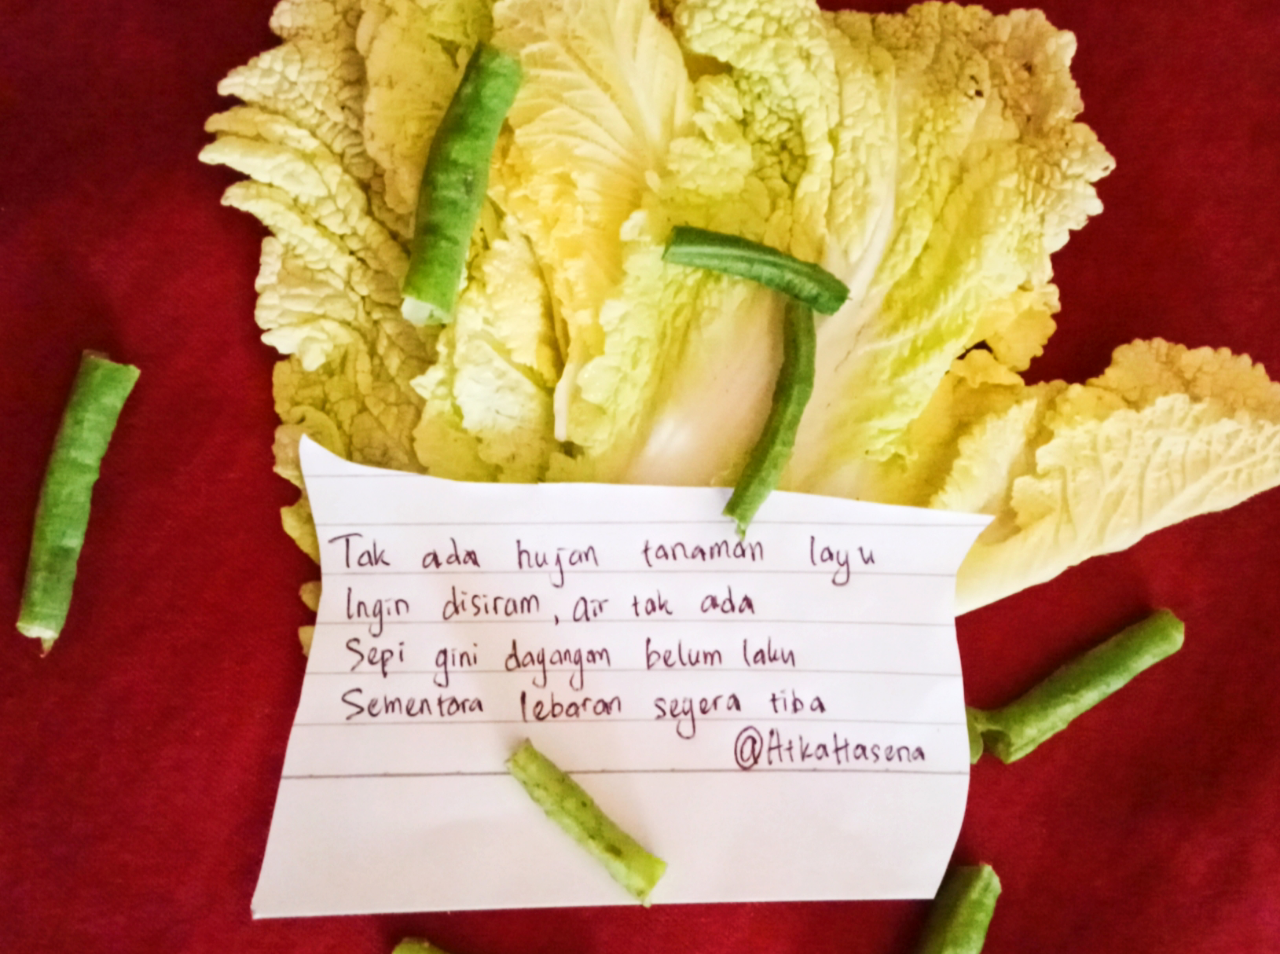 Tak ada hujan tanaman layu
Ingin disiram, air tak ada
Sepi gini dagangan belum laku
Sementara lebaran segera tiba
@AtkaHasena